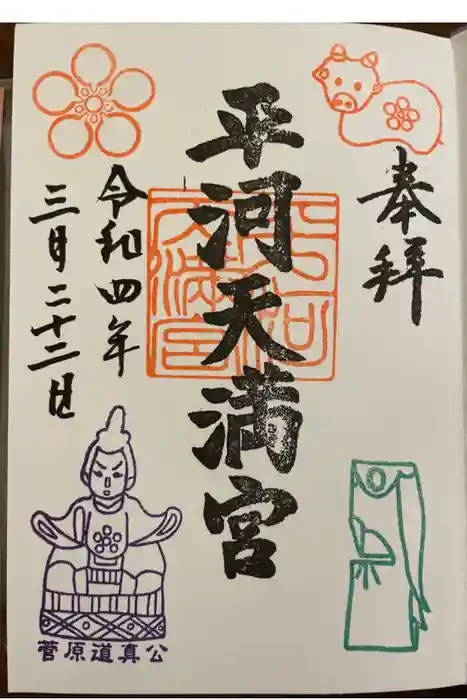 奉拝
平河天満宮
平河天満宮
令和四年
三月二十二日
菅原道真公